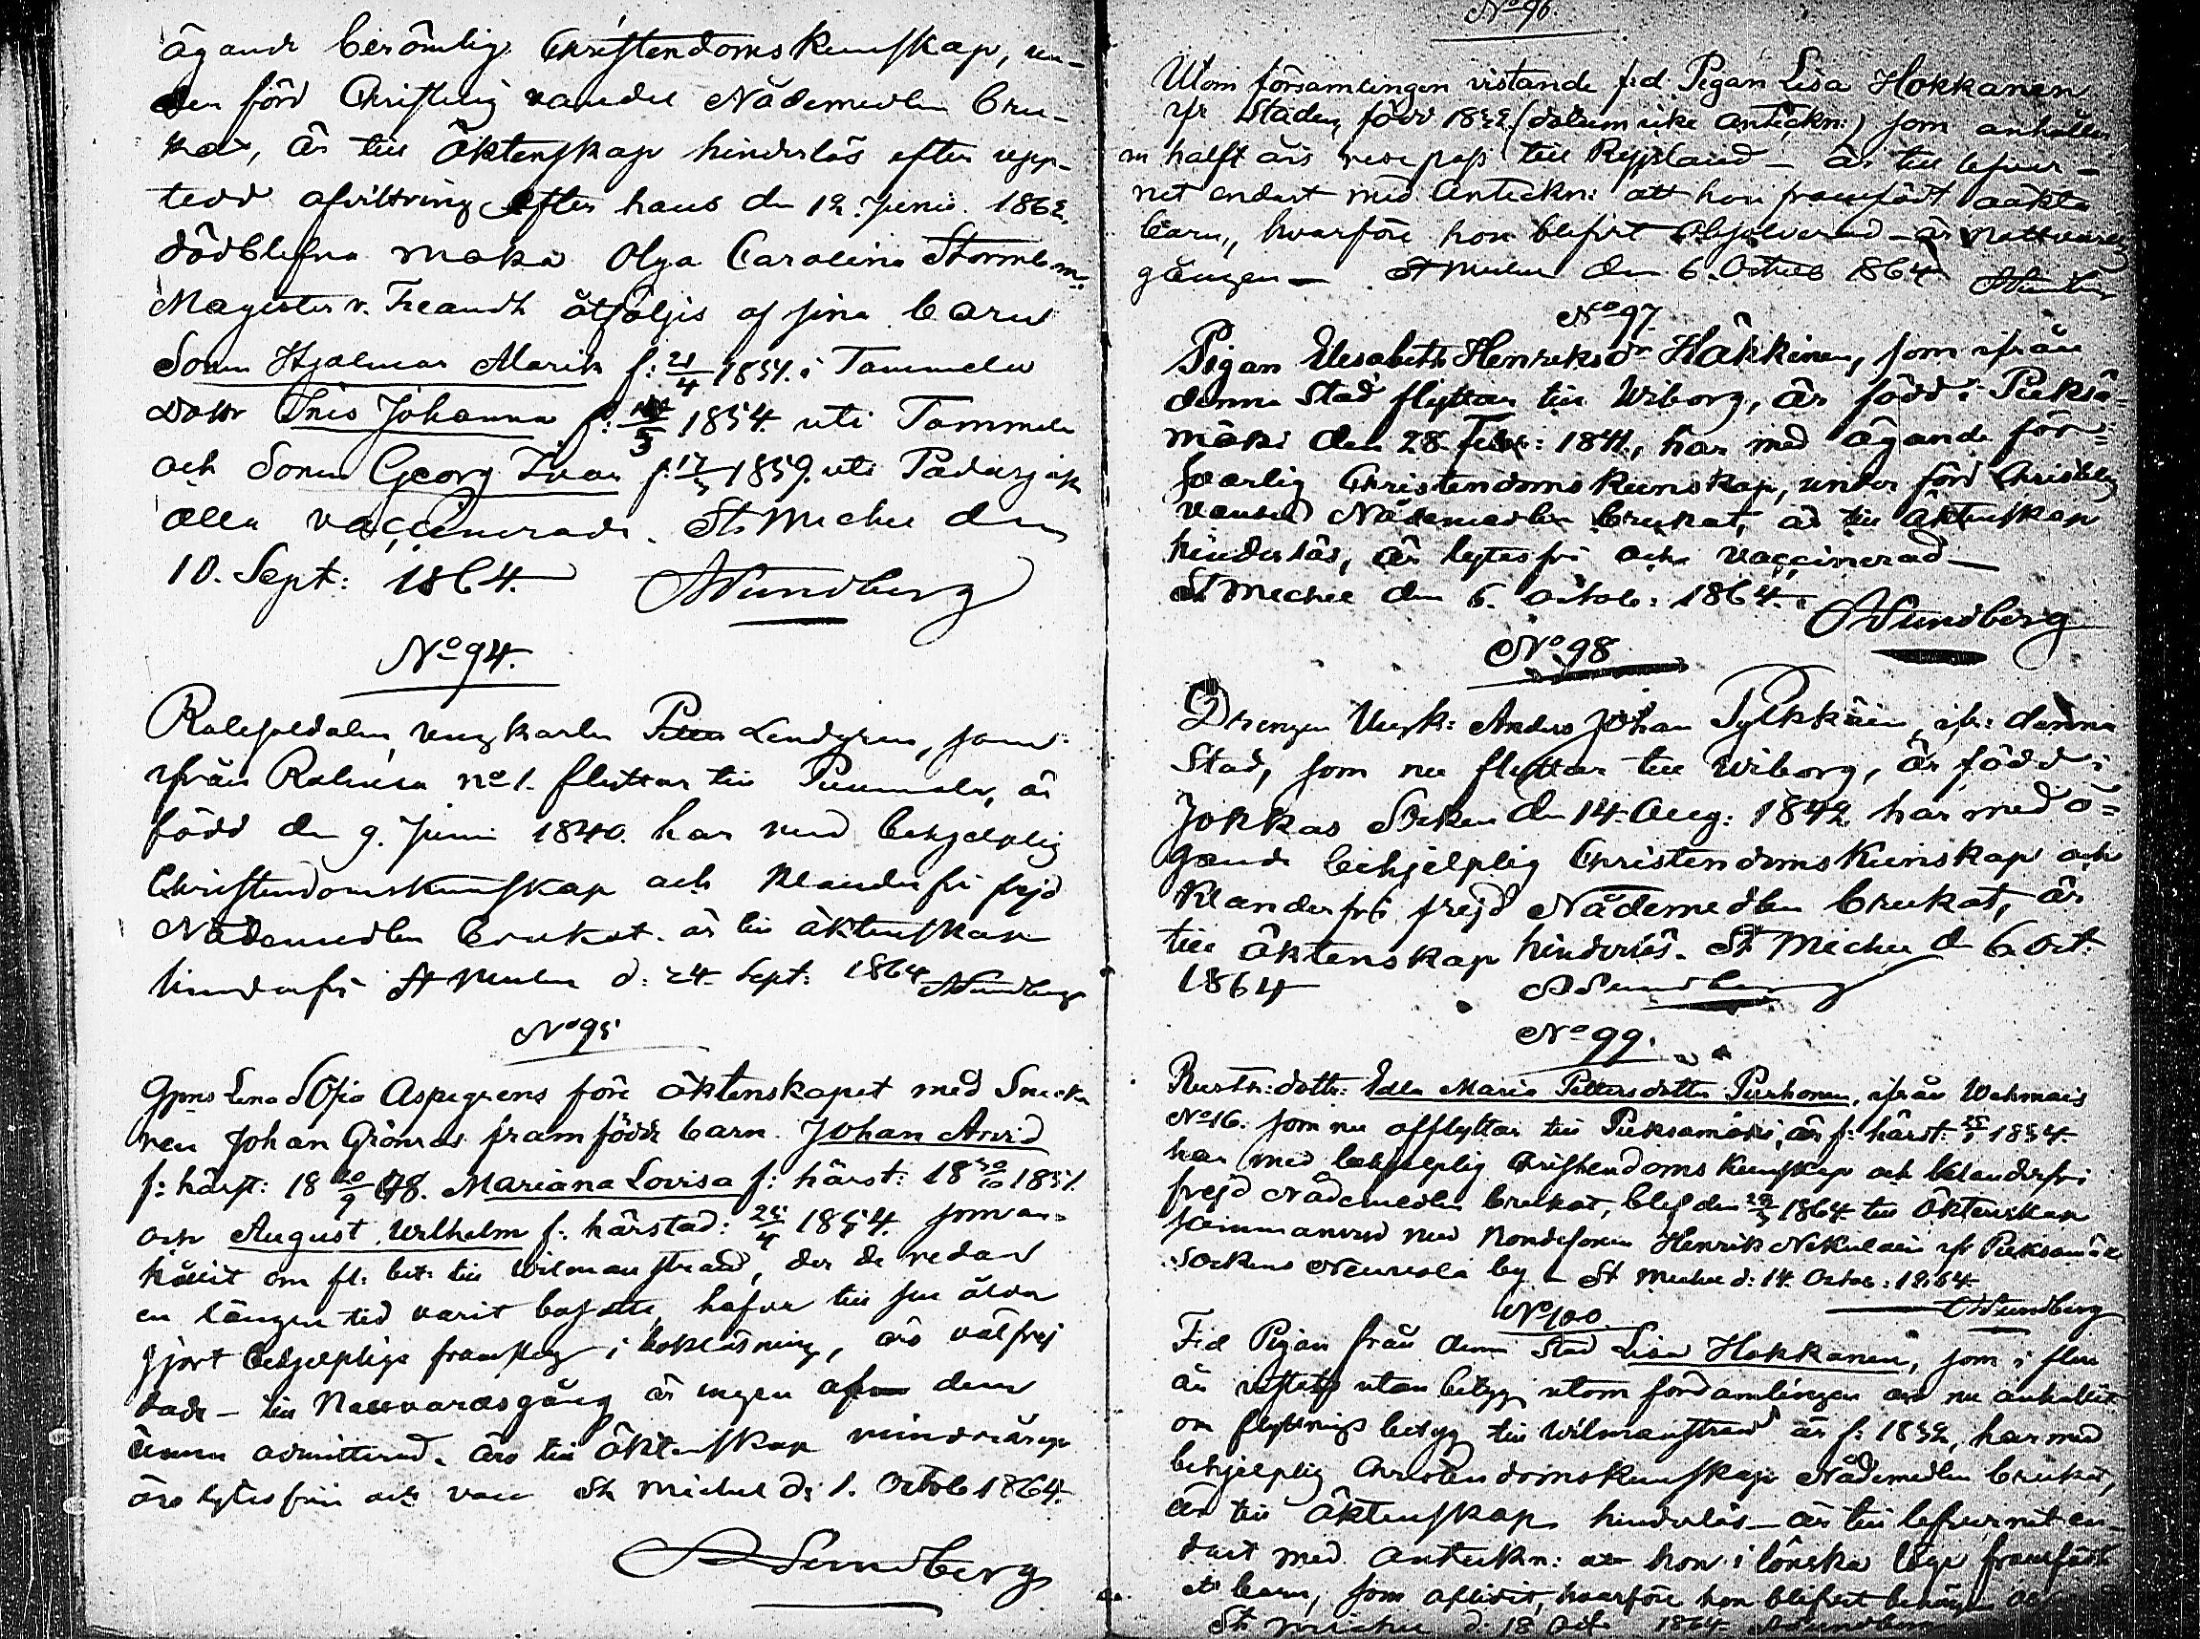 ägande berömlig Christendomskunskap, un-
der förd Christelig vandel Nådemedlen bru-
kat, är till Äktenskap hinderlös efter upp-
tedd afvittring efter hans den 12. Junii 1862.
dödblefna maka Olga Carolina
Magister v. Freandt åtföljes af sina barn
Sonen Hjalmar Alarik f: 21/4 1851. i Tammela
Dottr Inès Johanna f: 5 1854. uti Tammela
och Sonen Georg Ivar f. 17 1859. uti Padasjoki
alla vaccinerade. St Michel den
10. Sept: 1864. Sundberg
No 94.
ungkarlen Petter Lindgren, som
ifrån No 1. flyttar till Puumala, är
född den 9. Junii 1840. har med behjelplig
Christendomskunskap och klanderfri frejd
Nådemedlen brukat. är till äktenskap
hinderfri St Michel d: 24. Sept: 1864 Sundberg
No 95
Gjms Lena Sofia Aspegrens före äktenskapet med Snicka
ren Johan Grönroos framfödde barn. Johan Arvid
f: härst: 18 20/9 48. Mariana Lovisa f: härst: 18 30/10 1851.
och August Wilhelm f: härstad: 25/4 1854. som an-
hållit om fl: bet: till Wilmanstrand, der de redan
en längre tid varit bosatte, hafva till sin ålder
gjort behjelplige framsteg i bokläsning, äro välfrej
dade – till Nattvardsgång är ingen af dem
ännu admitterad. äro till äktenskap minderåriga
äro lytesfrii och vacc St Michel d: 1. Octob 1864.
Sundberg
No 96.
Utom församlingen vistande f:d. Pigan Lisa Hokkanen
ifr Staden, född 1832. (datum icke anteckn:) som anhåller
om halft års respass till Ryssland – är till lefver-
net endast med anteckn: att hon framfödt oäkta
barn, hvarföre hon blifvit absolverad – är Nattvards
gången – St Michel den 6. Octob 1864 Sundberg
No 97.
Pigan Elisabeth Henriksdr Häkkinen, som ifrån
denna Stad flyttar till Wiborg, är född i Pieksä-
mäki den 28. Febr: 1841., har med ägande för-
svarlig Christendoms kunskap, under förd Christelig
vandel Nådemedlen brukat, är till äktenskap
hinderlös, är lytesfri och vaccinerad –
St Michel den 6. Octob: 1864. Sundberg
No 98
Drengen Ungk: Anders Johan Pylkkäin, ifr: denna
Stad, som nu flyttar till Wiborg, är född i
Jokkas Socken den 14. Aug: 1842 har med ä-
gande behjelplig Christendoms Kunskap och
klanderfri frejd Nådemedlen brukat, är
till äktenskap hinderlös. St Michel d 6. Oct:
1864 Sundberg
No 99.
Rusth: dottr: Edla Maria Pettersdotter Purhonen, ifrån Wehmais
No 16. som nu afflyttar till Pieksämäki, är f: härst: 1834.
har med behjelplig Christendoms kunskap och klanderfri
frejd Nådemedlen brukat, blef den 1864. till Äktenskap
sammanvigd med Bondesonen Henrik Nikulain ifr Pieksämäki
Sockens Neuvola by – St Michel d: 14. Octob: 1864.
Sundberg
No 100.
F.d Pigan från denna Stad Lisa Hokkanen, som i flere
år vistats utan betyg utom församlingen och nu anhållit
om flyttnings betyg till Wilmanstrand är f: 1832, har med
behjelplig Christendomskunskap Nådemedlen brukat,
är till Äktenskap hinderlös – är till lefvernet en-
dast med anteckn: att hon i lönska läge framfödt
ett barn, som aflidit, hvarföre hon blifvit
St Michel d. 18 Oct 1864. Sundberg